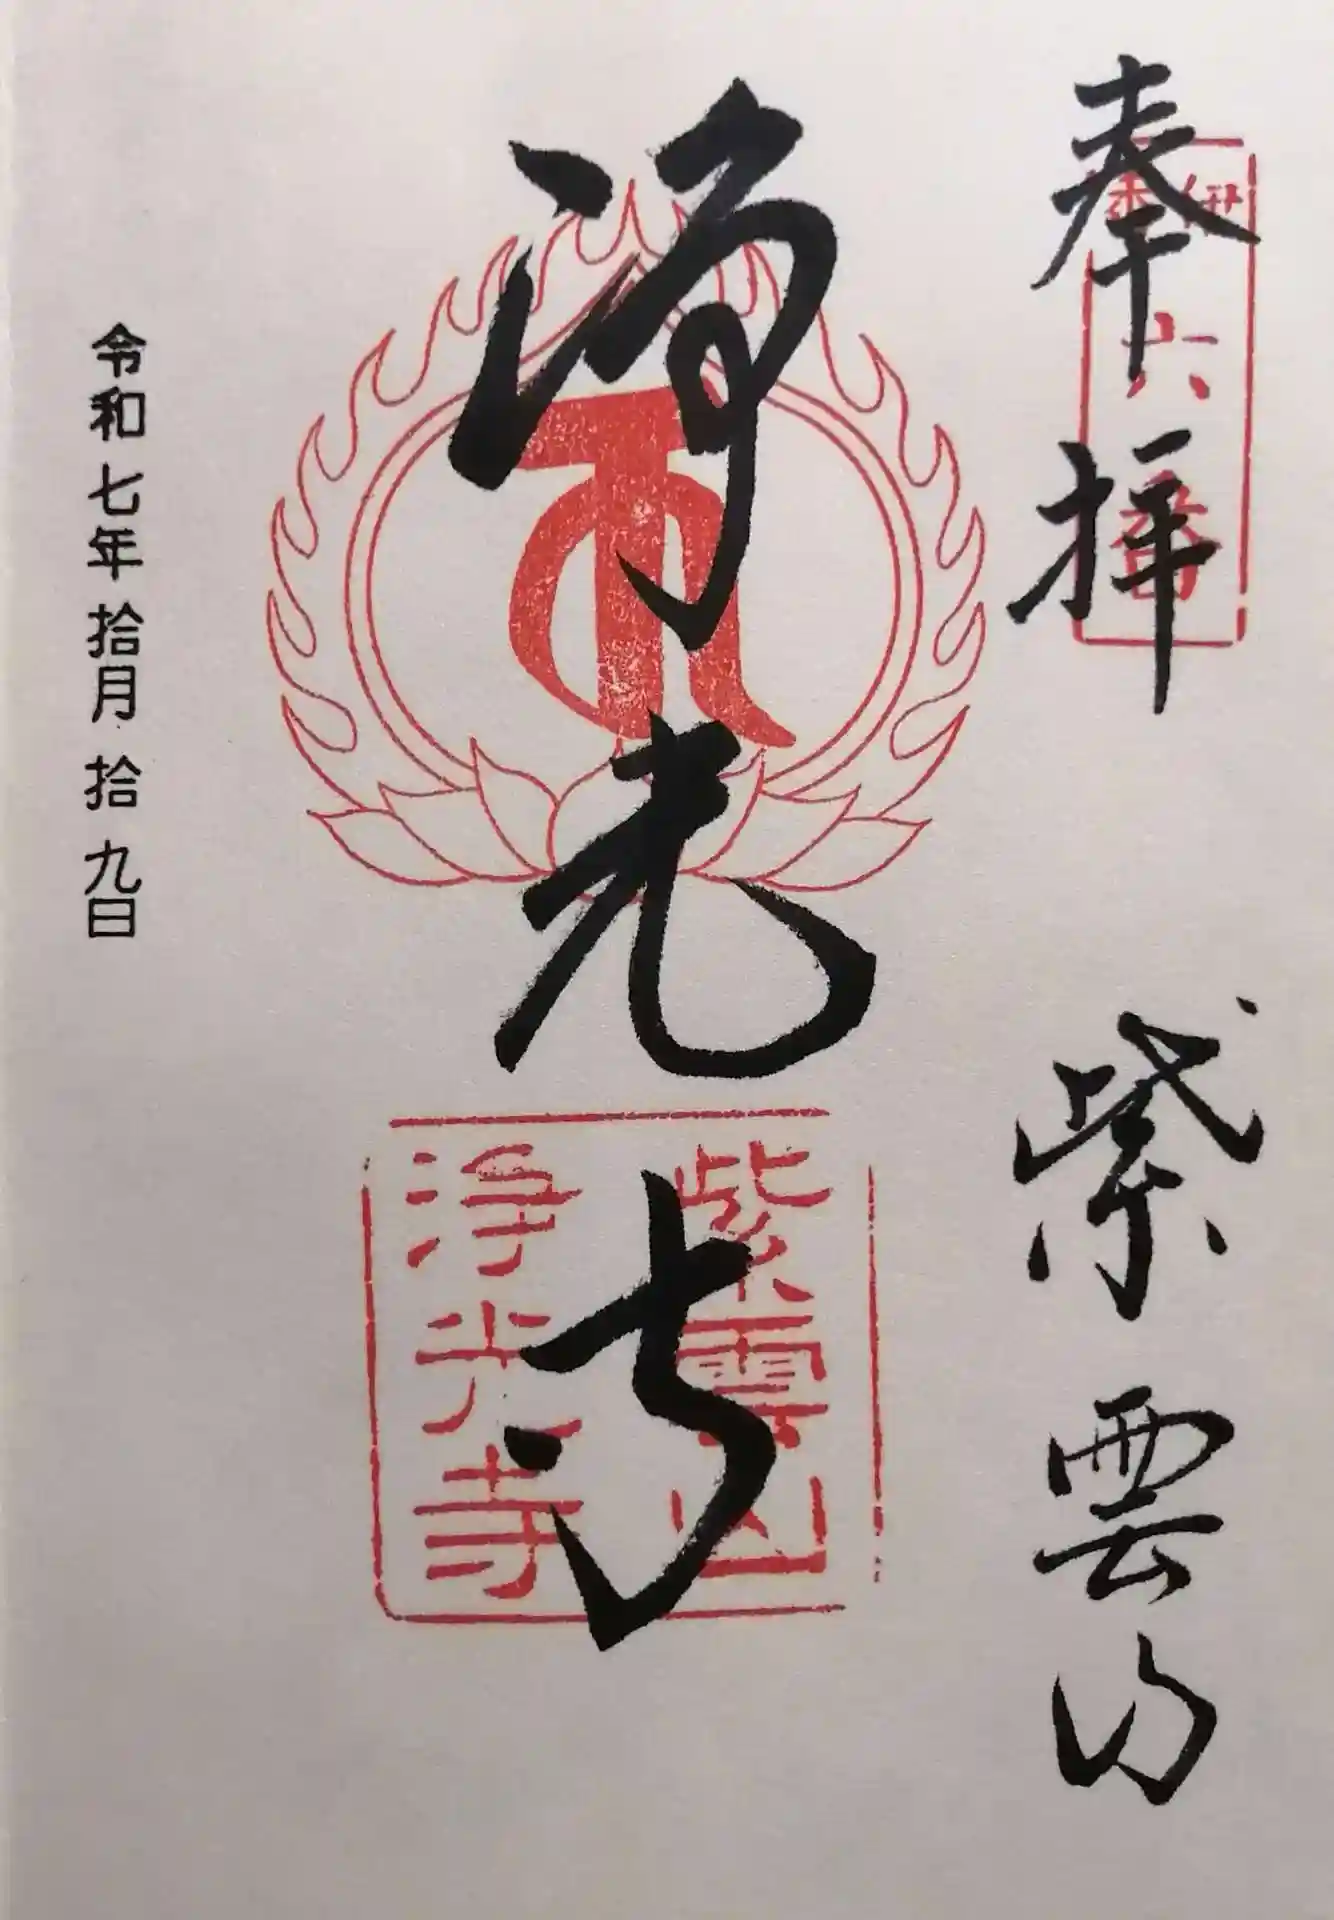 奉拝 紫雲山
六番
浄光寺
紫雲山
浄光寺
令和七年拾月拾九日